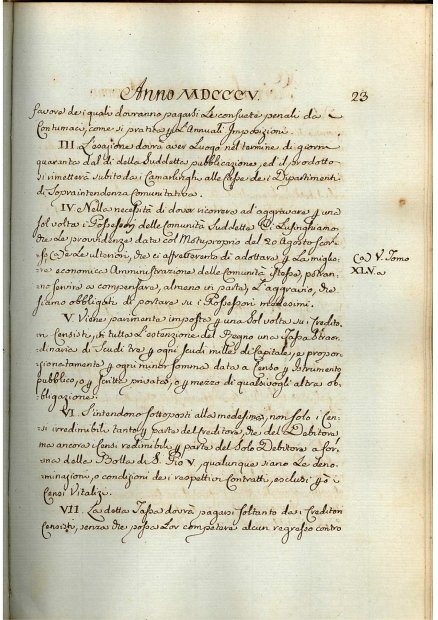 Anno MDCCCV. 23
favore dei quali dovranno pagarsi le consuete penali da
Contumaci, come si pratica gl'Annuali Imposizioni.
III. L'esazione dovrà aver luogo nel termine di giorni
quaranta dal dì della Suddetta pubblicazione, ed il prodotto
si rimetterà subito da i Camarlinghi alle Casse dei Dipartimenti
di Sopraintendenza Comunitativa.
IV. Nella necessità di dover ricorrere ad aggravare p una
sol volta i Possessori delle Comunità Suddette Ci lusinghiamo,
che le provvidenze date col Motuproprio del 20 Agosto scor:
so (a) e le ulteriori, che ci affretteremo di adottare p la miglio:
re economica Amministrazione delle Comunità stesse, potran:
no servire a compensare, almeno in parte, l'aggravio, che
siamo obbligati di portare su i Possessori medesimi.
(a) V. Tomo
XLV. a
V. Viene parimente imposta p una sol volta su i Creditori
Censisti, di tutta l'estenzione del Regno una Tassa straor:
dinaria di Scudi tre p ogni scudi mille di Capitale, e propor:
zionatamente p ogni minor somma data a Censo p Istrumento
pubblico, o p scritta privata, o p mezzo di qualsivogli altra ob:
bligazione.
VI. S'intendono sottoposti alla medesima, non solo i Cen:
si irredimibili tanto p parte del Creditore, che del Debitore
ma ancora i Censi redimibili p parte del solo Debitore a for:
ma della Bolla di S. Pio V, qualunque siano le deno:
minazioni, o condizioni dei respettivi Contratti, esclusi p ò i
Censi Vitalizi.
VII. La detta Tassa dovrà pagarsi soltanto da i Creditori
Censisti, senza che possa lor competere alcun regresso contro